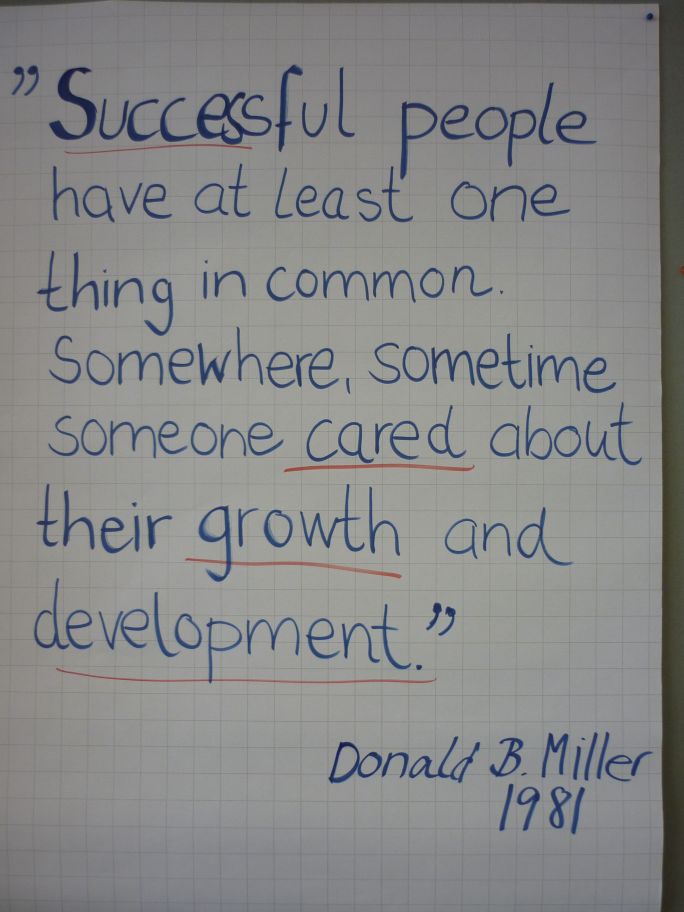 ”Successful people
have at least one
thing in common.
Somewhere, sometime
someone cared about
their growth and
development.”
Donald B. Miller
1981